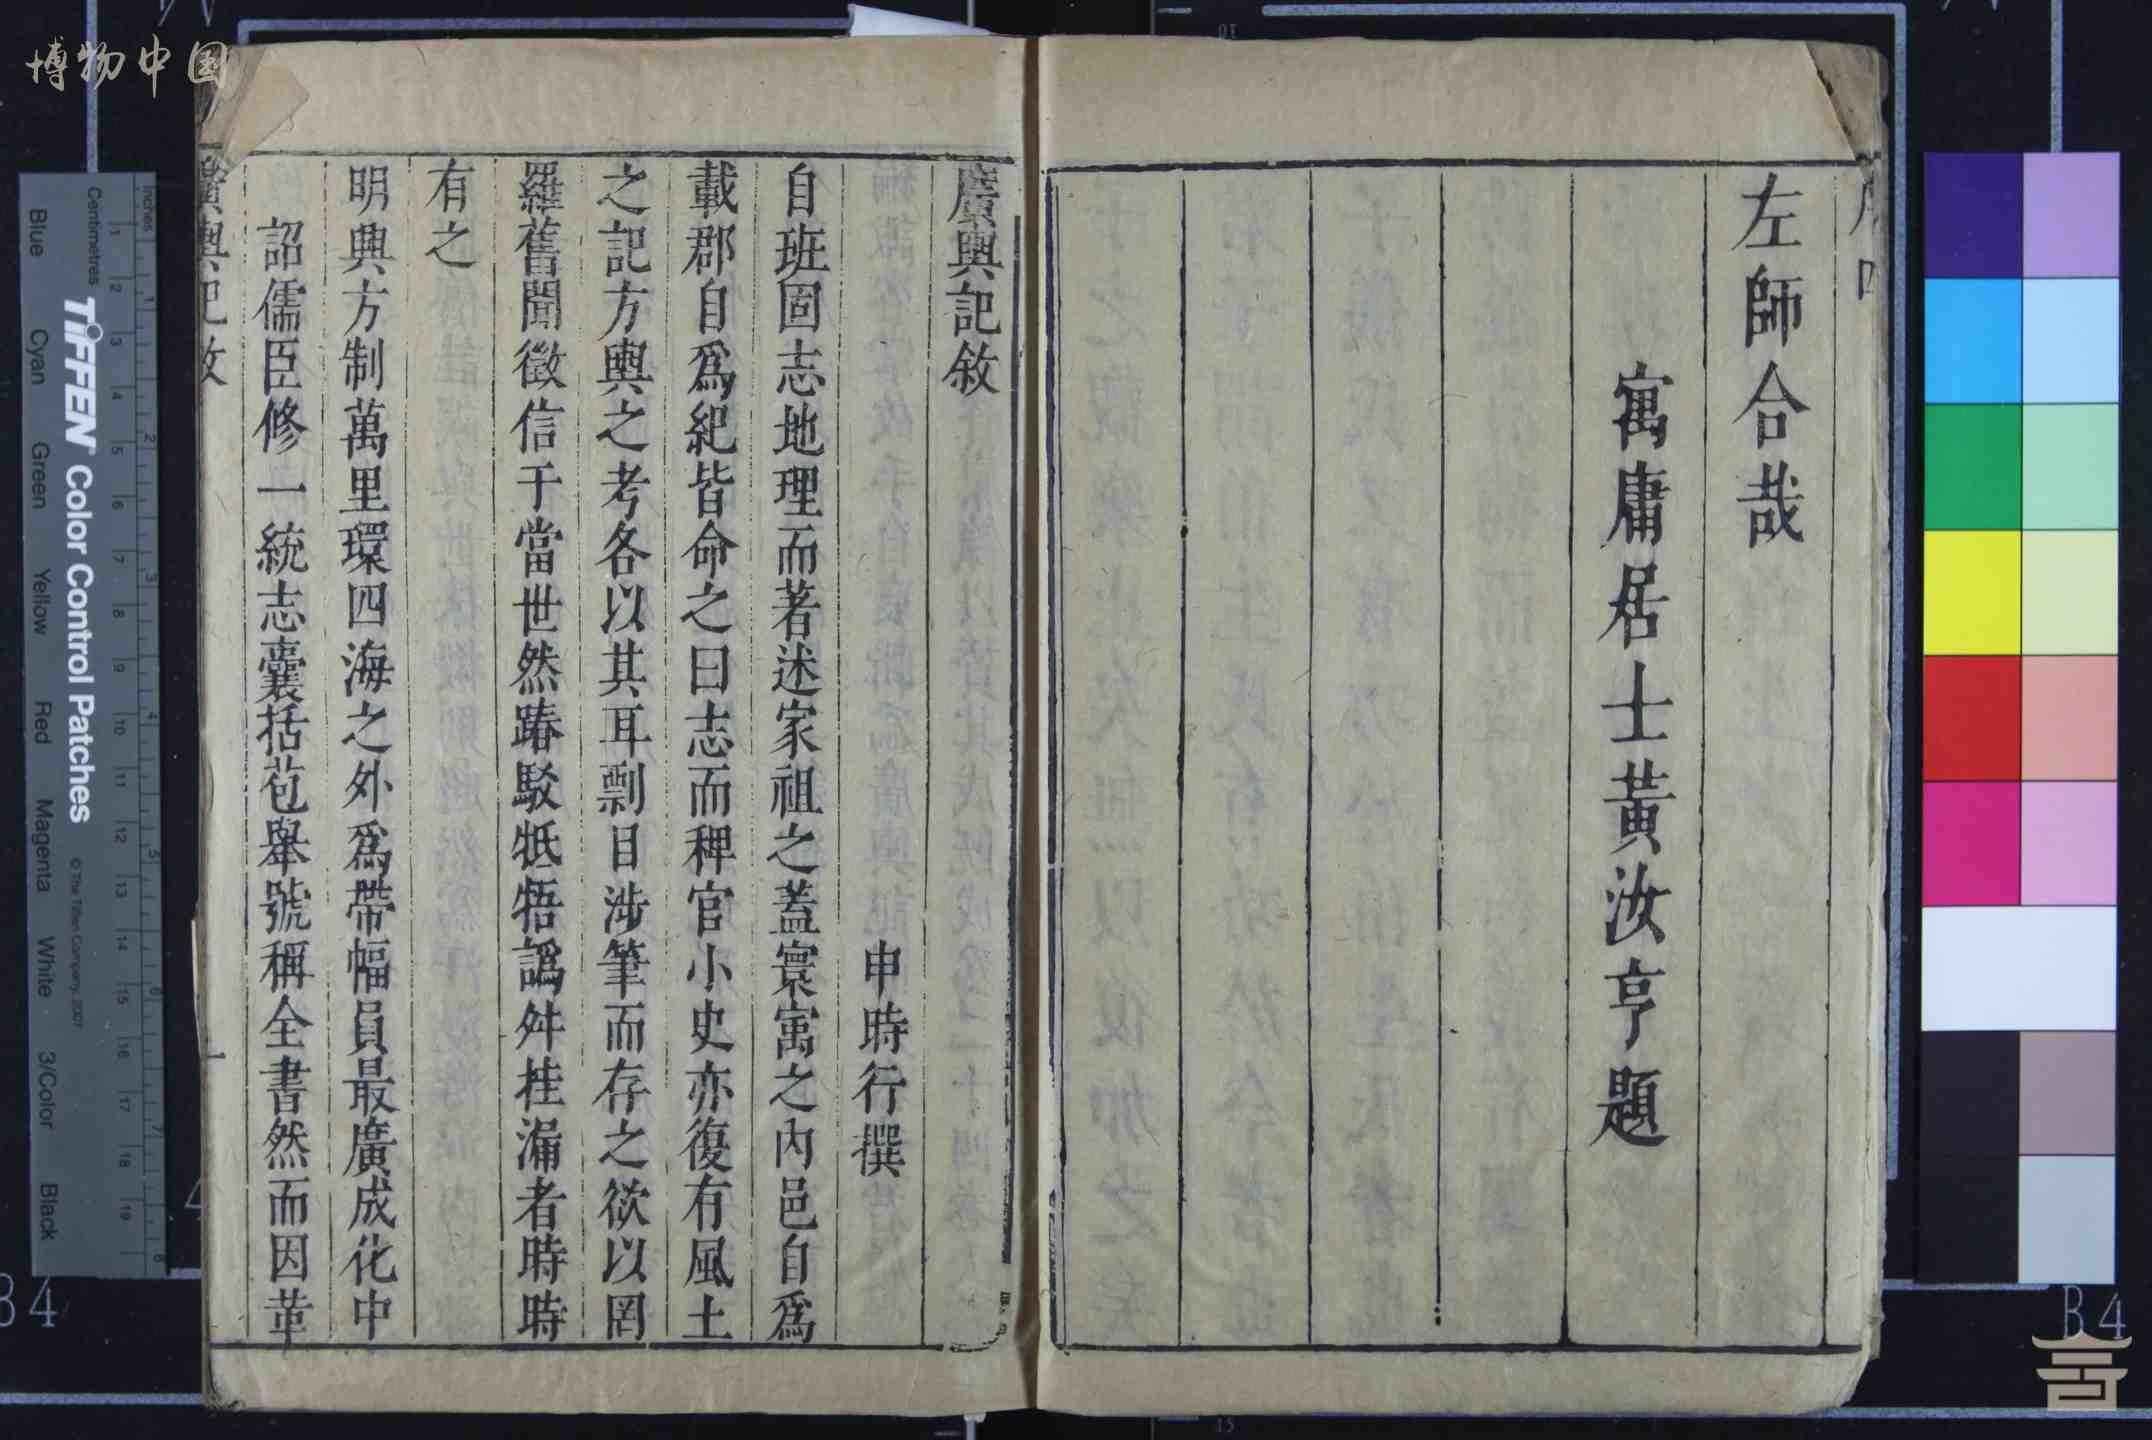 左師合哉
寓庸居士黃汝亨題
廣輿記敘
申時行撰
自班固志地理而著述家祖之蓋寰寓之內邑自爲
載郡自爲紀皆命之曰志而稗官小史亦復有風土
之記方輿之考各以其耳剽目涉筆而存之欲以罔
羅舊聞徵信于當世然踳駁牴牾譌舛挂漏者時時
有之
明興方制萬里環四海之外爲帶幅員最廣成化中
詔儒臣修一統志囊括苞舉號稱全書然而因革
廣輿記敘
一
博物中国
Inches
Centimetres
1 2 3 4 5 6 7 8 9 10 11 12 13 14 15 16 17 18 19
TIFFEN Color Control Patches
© The Tiffen Company, 2007
Blue Cyan Green Yellow Red Magenta White 3/Color Black
B4
B4